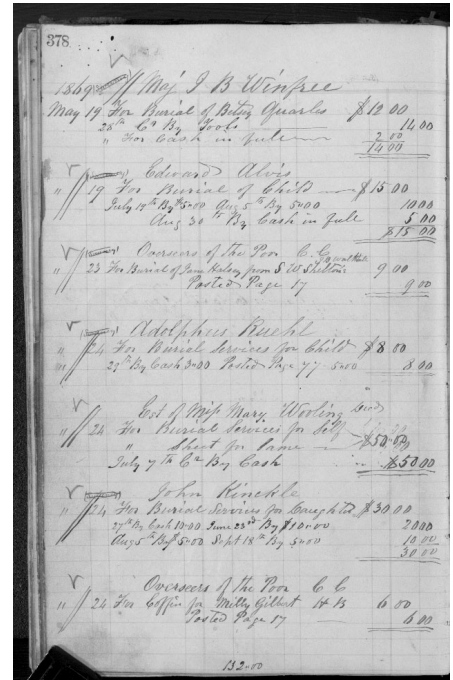 378
1869 Maj J B Winfree
May 19 For Burial of Betsy Quarles $12 00
28th Cr By Tools 14 00
" For Cash in full 2 00
14 00
Edward Alvis
" 19 For Burial of Child $15 00
July 19th By $5.00 Aug 5th By 5.00 10 00
Aug 30th By Cash in full 5 00
$15 00
Overseers of the Poor C. C.
" 23 For Burial of Jane Kelsey from S W Shelton's 9 00
Posted Page 17 9 00
Adolphus Ruehl
" 24 For Burial Services for Child $8 00
" 29th By Cash 3.00 Posted Page 77 5.00 8 00
Est of Miss Mary Wooling Decd
" 24 For Burial Services for Self
" Sheet for Same $50.00
July 7th Cr By Cash $50.00
John Kinckle
" 24 For Burial Services for Daughter $30 00
27th By Cash 10.00 June 23rd By $10.00 20 00
Aug 5th By $5.00 Sept 18th By 5.00 10 00
30 00
Overseers of the Poor C C
" 24 For Coffin for Milly Gilbert H B 6 00
Posted Page 17 6 00
132.00